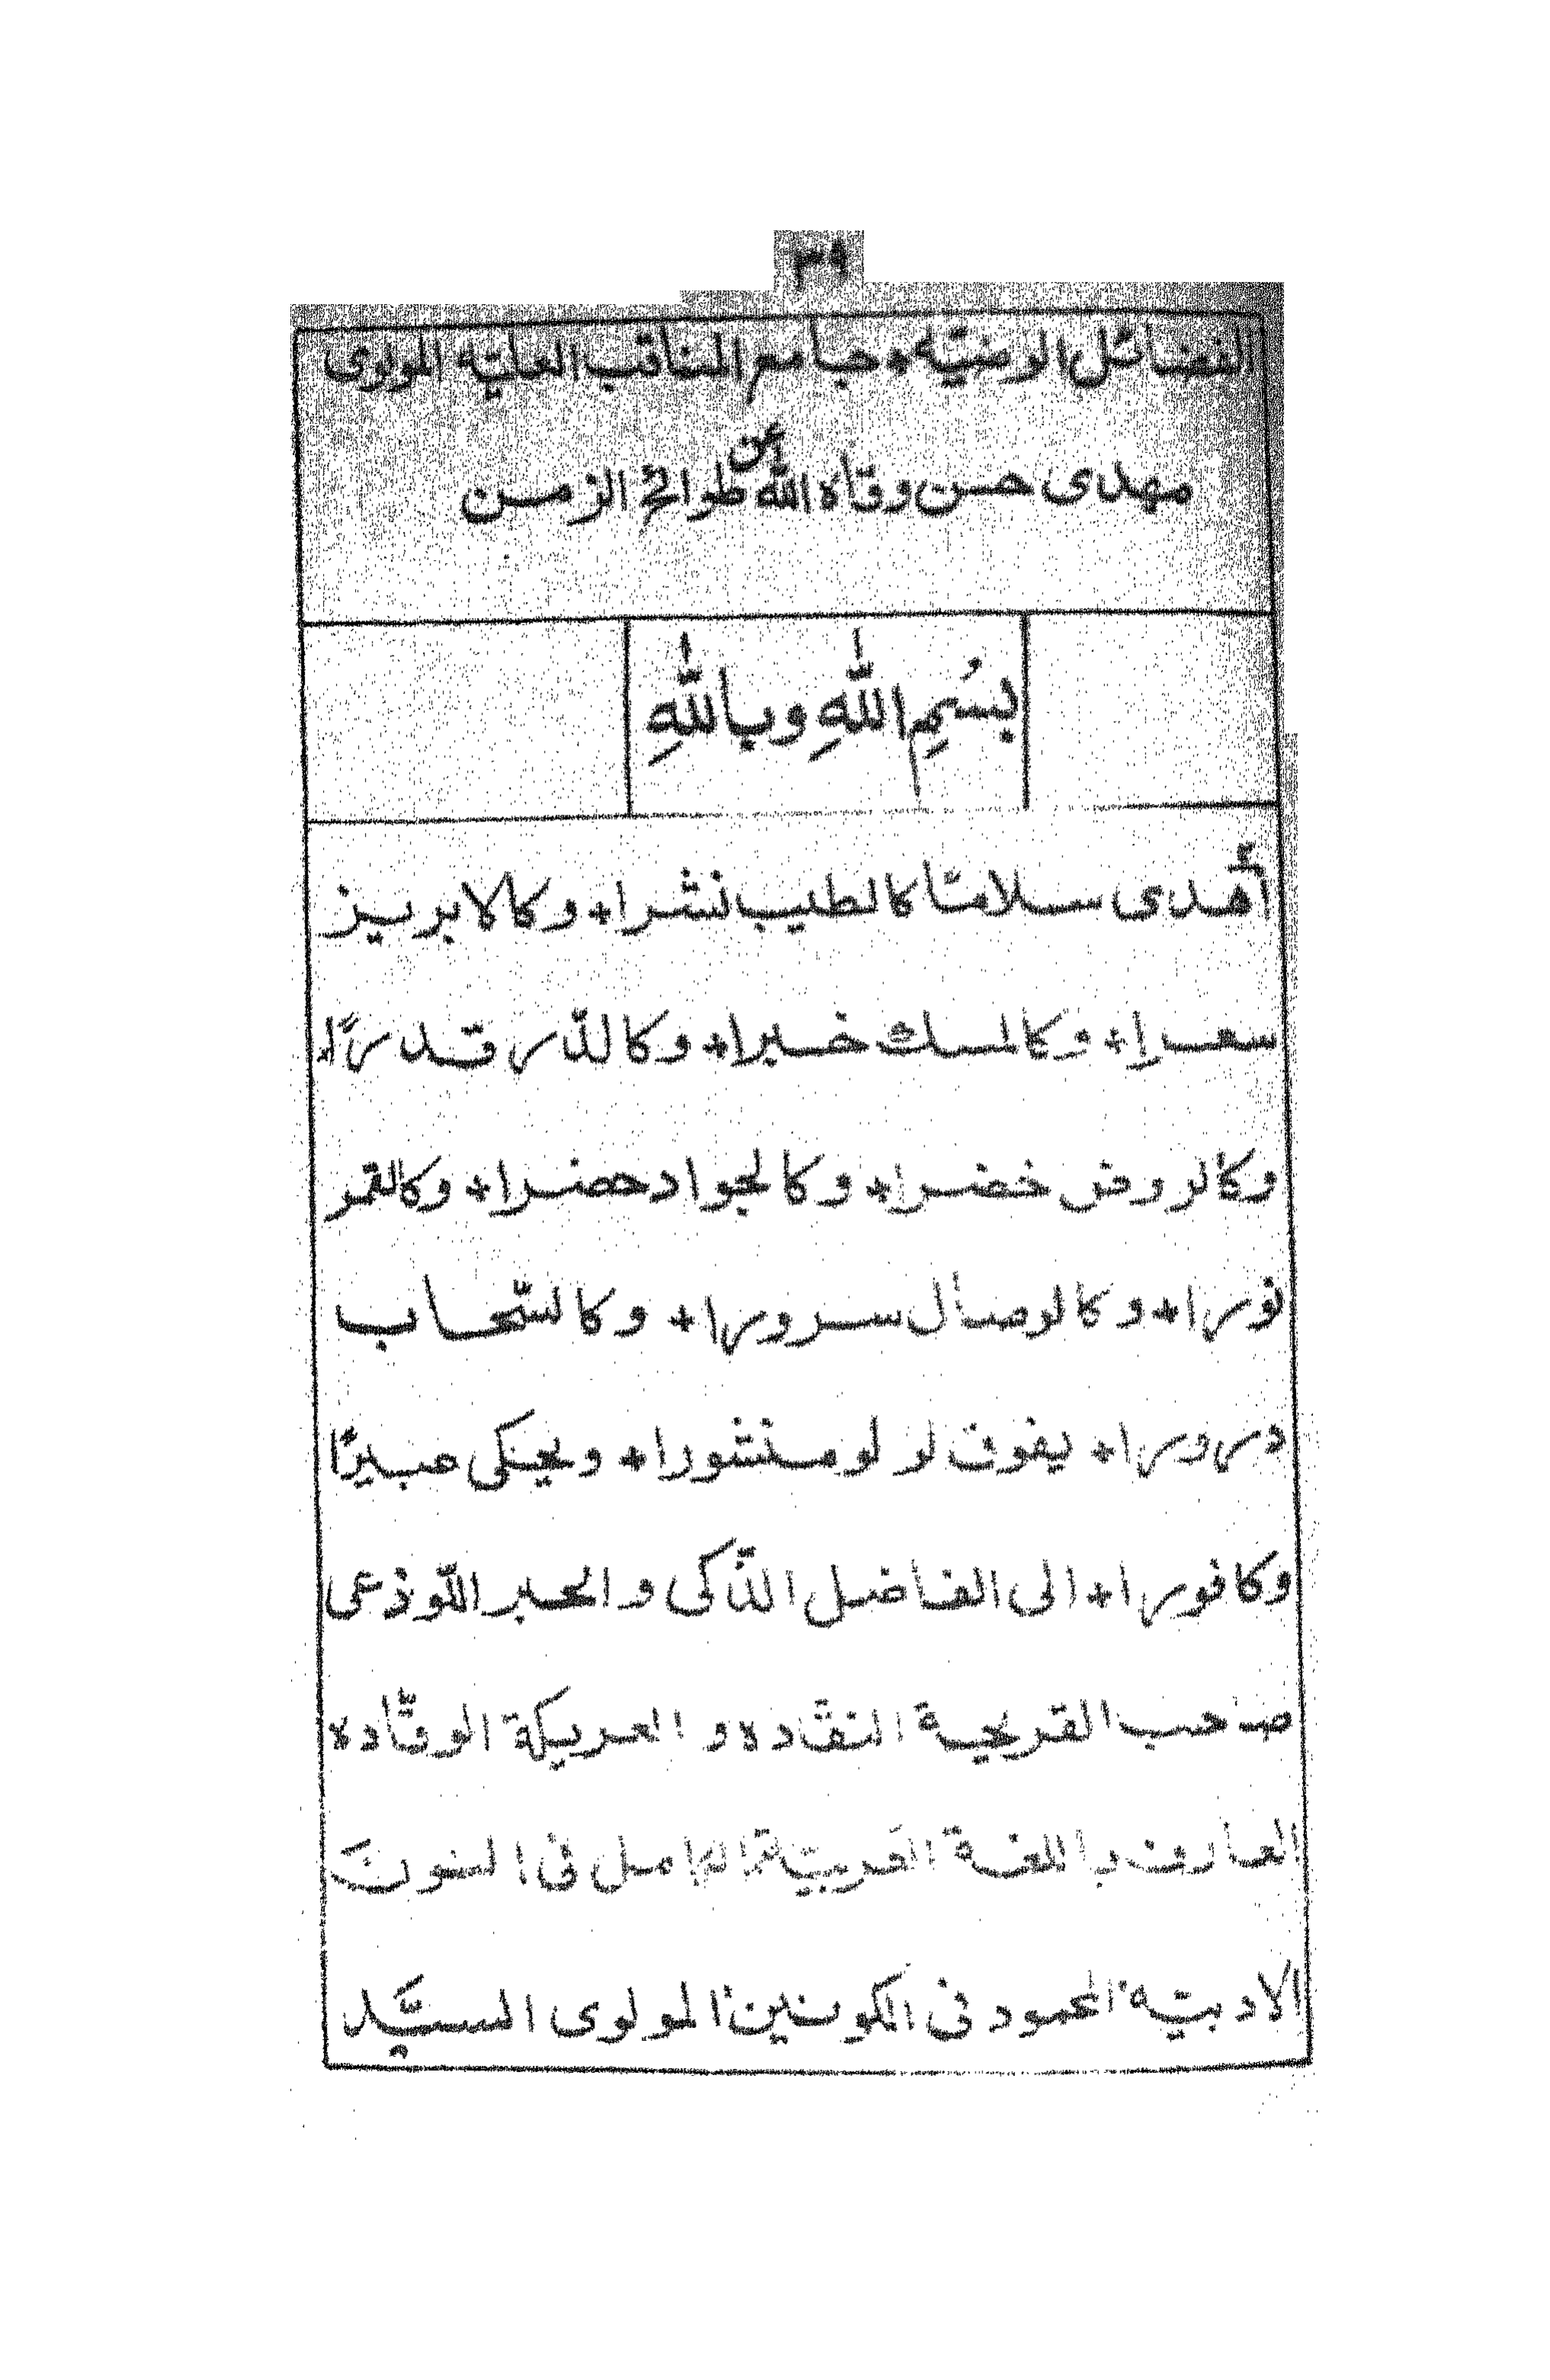 ٣٩
الفضائل الرضيّه + جامع المناقب العليّه المولوى
مهدى حسن وقاه الله عن طوائح الزمن
بسُمِ اللهِ وباللهِ
أُهدى سلامًا كالطيب نشرا + وكالابريز
سعرا + وكالمسك خبرا + وكالدّر قدرًا +
وكالروض خضرا + وكالجواد حضرا + وكالقمر
نورا + وكالوصال سرورا + وكالسّحاب
درورا + يفوق لو لو منشورا + ويحكى عبيرًا
وكافورا + الى الفاضل الذّكى والحبر اللّوذعى
صاحب القريحية النقّاده و العريكة الوقّاده
العارف باللغة العربيّة الكامل فى الفنون
الادبيّه المحمود فى الكونين المولوى السيّد